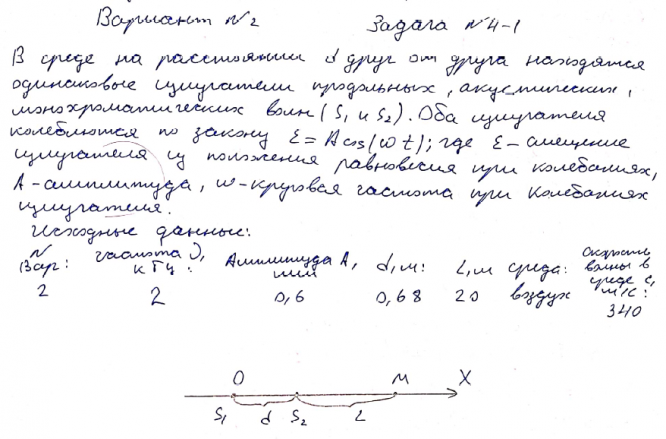 Вариант N2 Задача N4-1
В среде на расстоянии d друг от друга находятся
одинаковые излучатели продольных, акустических,
монохроматических волн (S₁ и S₂). Оба излучателя
колеблются по закону ξ = A cos(ωt); где ξ - смещение
излучателя из положения равновесия при колебаниях,
A - амплитуда, ω - круговая частота при колебаниях
излучателя.
Исходные данные:
N Вар: частота ν, кГц: Амплитуда A, мм d, м: L, м среда: Скорость волны в среде c, м/с:
2 2 0,6 0,68 20 воздух 340
O M X
S₁ d S₂ L